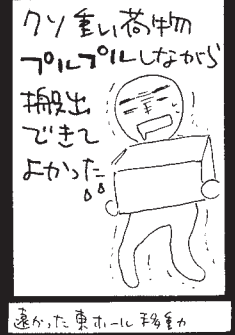 クソ重い荷物
プルプルしながら
搬出
できて
よかった
遠かった東ホール移動